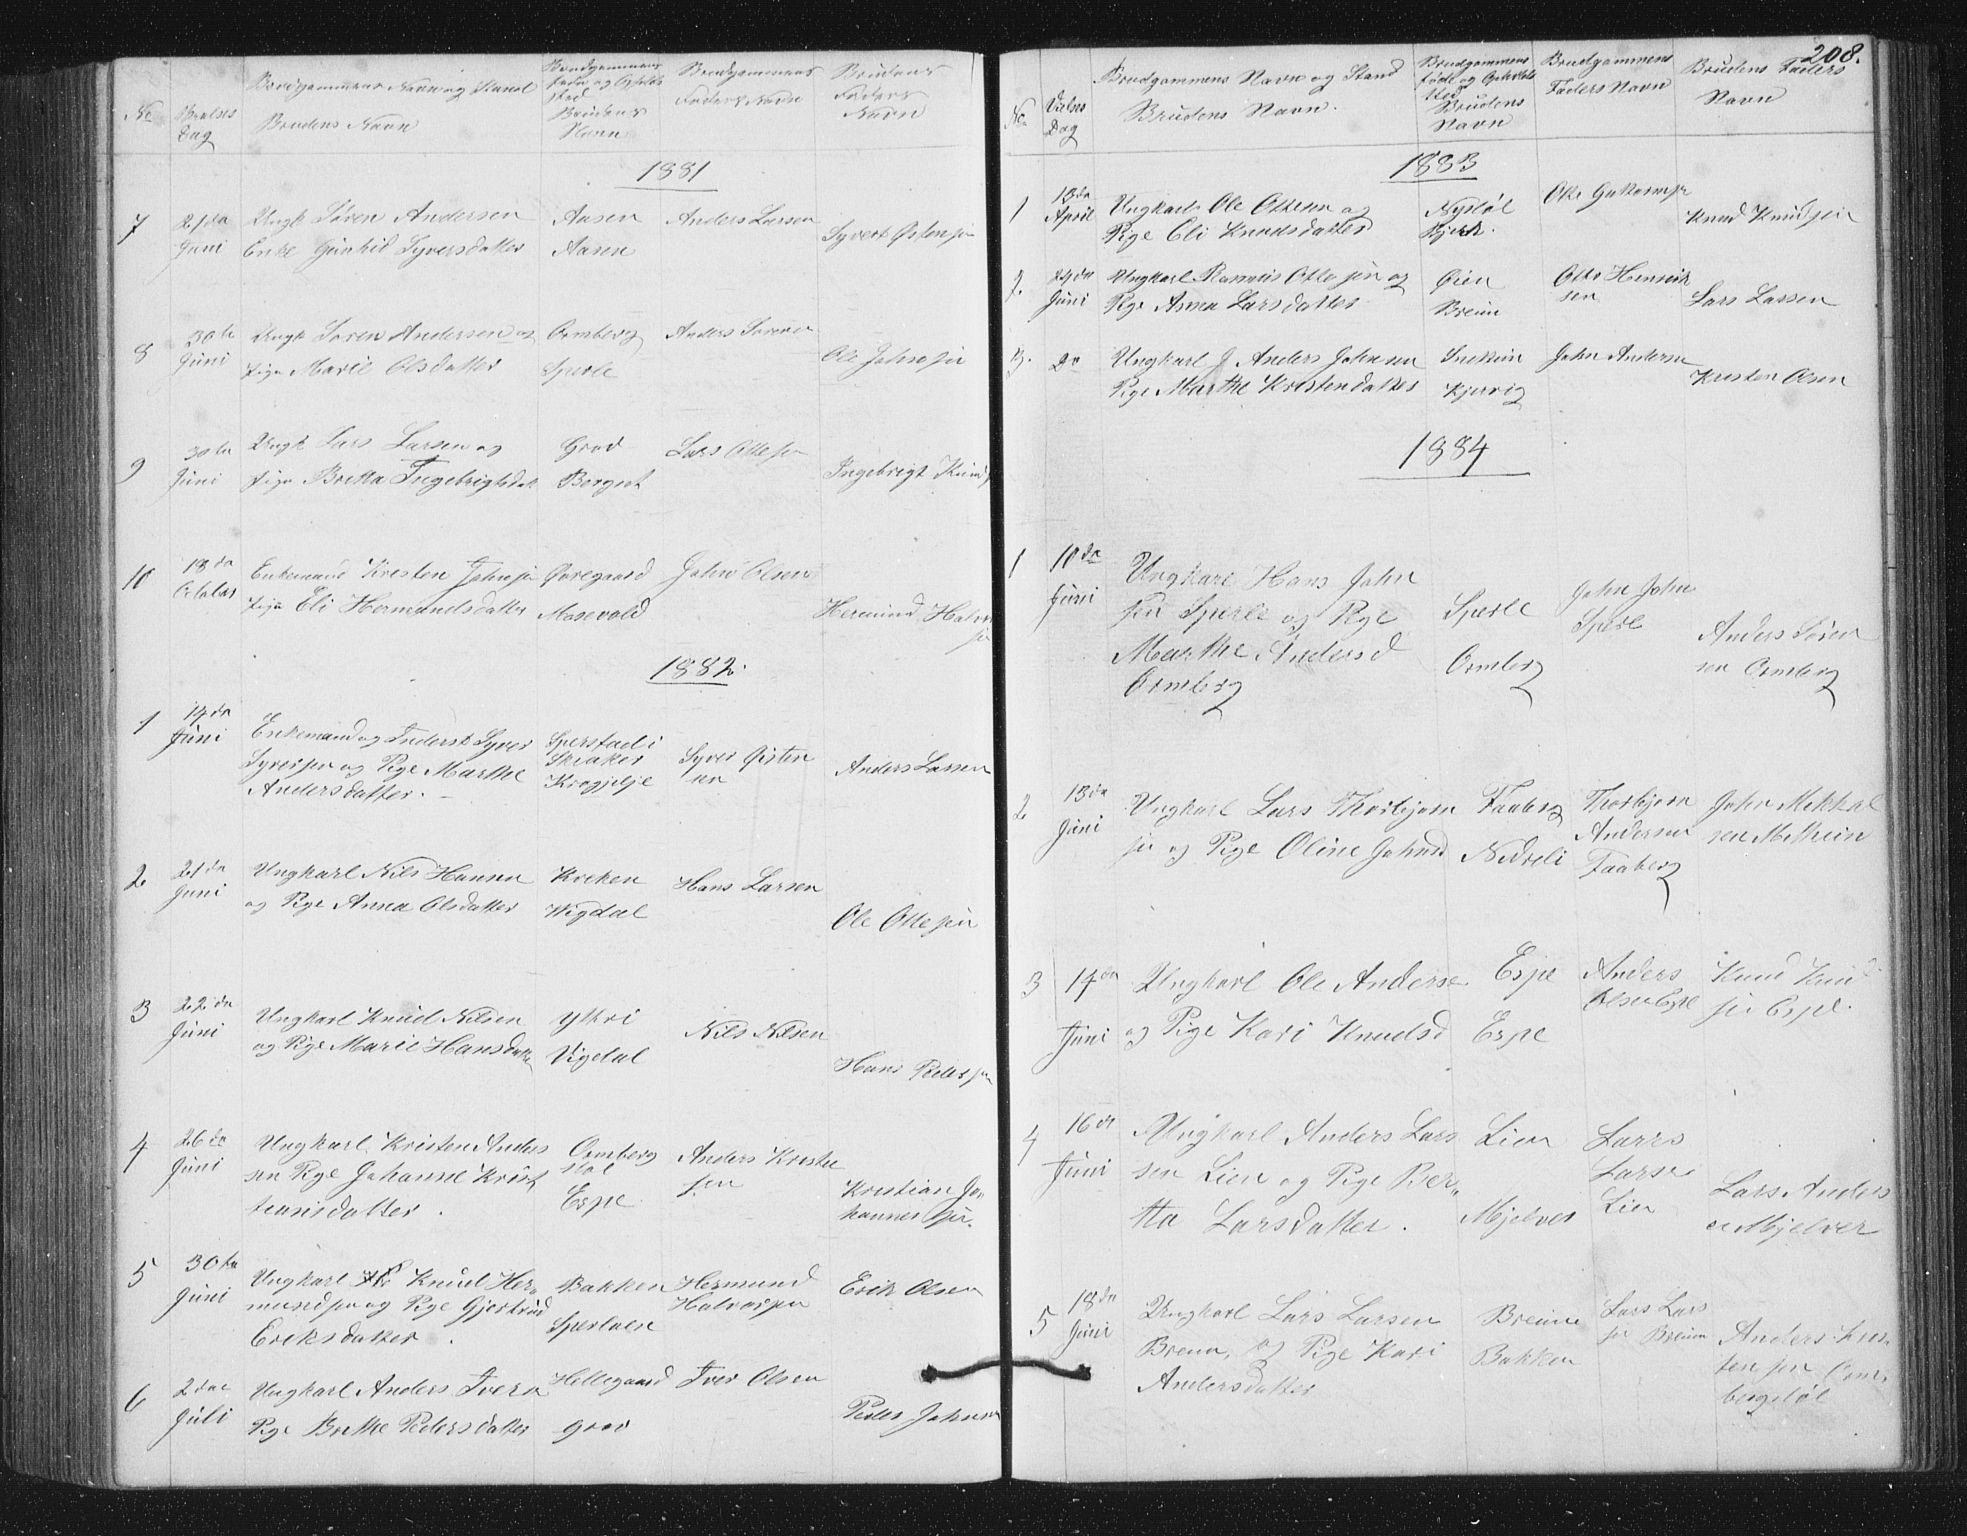 No
Brudgommens Navn og Stand
Brudens Navn
Dag
Brudens
Navn
Brudgommens
Faders Navn
Brudens
Faders
Navn
1881
7
21de
Juni
Ungk Søren Andersen
Enke Gunhild Syversdatter
Aasen
Aasen
Anders Larsen
Syvert Østensen
8
30te
Juni
Ungk Søren Andersen og
Pige Marie Olsdatter
Ormberg
Sperle
Anders Sørensen
Ole Johnsen
9
30te
Juni
Ungk Lars Larsen og
Pige Britta Ingebrigtsdat
Grod
Borgset
Lars Ottesen
Ingebrigt Knuds
10
18de
October
Enkemand Kresten Johnsen
Pige Eli Hermundsdatter
Øvregaard
Mosevold
John Olsen
Hermund Halvor
sen
1882.
1
14de
Juni
Enkemand og Inderst Syver
Syversen og Pige Marthe
Andersdatter.
Sperstad i
Skiaker
Syver Østen
sen
Anders Larsen
2
21de
Juni
Ungkarl Nils Hansen
og Pige Anna Olsdatter
Kreken
Wigdal
Hans Larsen
Ole Ottesen
3
22de
Juni
Ungkarl Knud Nilsen
og Pige Marie Hansdatter
Ytkri
Vigdal
Nils Nilsen
Hans Pedersen
4
26de
Juni
Ungkarl Kristen Anders
sen Pige Johanne Krist
iansdatter.
Ormberg
støl
Espe
Anders Kriste
sen
Kristian Jo
hannessen.
5
30te
Juni
Ungkarl Knud Her
mundsen og Pige Gjertrud
Eriksdatter.
Bakken
Hermund
Halvorsen
Erik Olsen
6
2den
Juli
Ungkarl Anders Iversen
Pige Brithe Pedersdatter
Hellegaard
Grod
Iver Olsen
Peder Johnsen
208.
No
Vielses
Dag
Brudgommens Navn og Stand
Brudens Navn.
Brudgommens
Føde og Opholds
sted
Brudens
Navn
Brudgommens
Faders Navn
Brudens Faders
Navn
1883
1
13de
April
Ungkarl Ole Ottesen og
Pige Eli Knudsdatter
Nystøl
Bjerk.
Knud Knudsen
2.
24de
Juni
Ungkarl Rasmus Ottosen og
Pige Anna Larsdatter
Øien
Breim
Otto Henrik
sen
Lars Larsen
3.
Do
Ungkarl Anders Johnsen
Pige Marthe Kristendatter
Kjervig
John Andersen
Kristen Olsen
1884
1
10de
Juni
Ungkarl Hans John
sen Sperle og Pige
Marthe Andersd
Ormberg
Sperle
Ormberg
John John
Sperle
Anders Søren
sen Ormberg
2
13de
Juni
Ungkarl Lars Thorbjørn
sen og Pige Oline Johnsd
Faaberg
Nedreli
Thorbjørn
Andersen
Faaberg
John Mikkel
sen
3
14de
Juni
Ungkarl Ole Andersen
og Pige Kari Knudsd
Espe
Espe
Anders
Olsen Espe
Knud Knud
sen Espe.
4
16de
Juni
Ungkarl Anders Lars
sen Lien og Pige Ber
tha Larsdatter.
Lien
Mjelver
Lars
Larsen
Lien
Lars Anders
en Mjelver
5
18de
Juni
Ungkarl Lars Larsen
Breim, og Pige Kari
Andersdatter
Breim
Bakken
Lars Lars
sen Breim
Anders
sen Orm
bergstøl